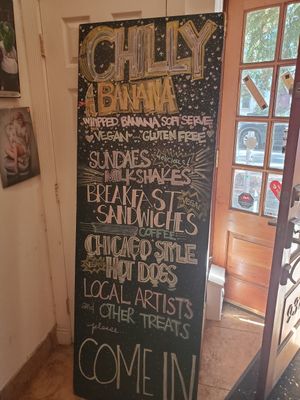 CHILLY
BANANA
WHIPPED BANANA SOFT SERVE
VEGAN GLUTEN FREE
SUNDAES
MILKSHAKES
BREAKFAST
SANDWICHES
COFFEE
CHICAGO STYLE
HOT DOGS
LOCAL ARTISTS
AND OTHER TREATS
please
COME IN